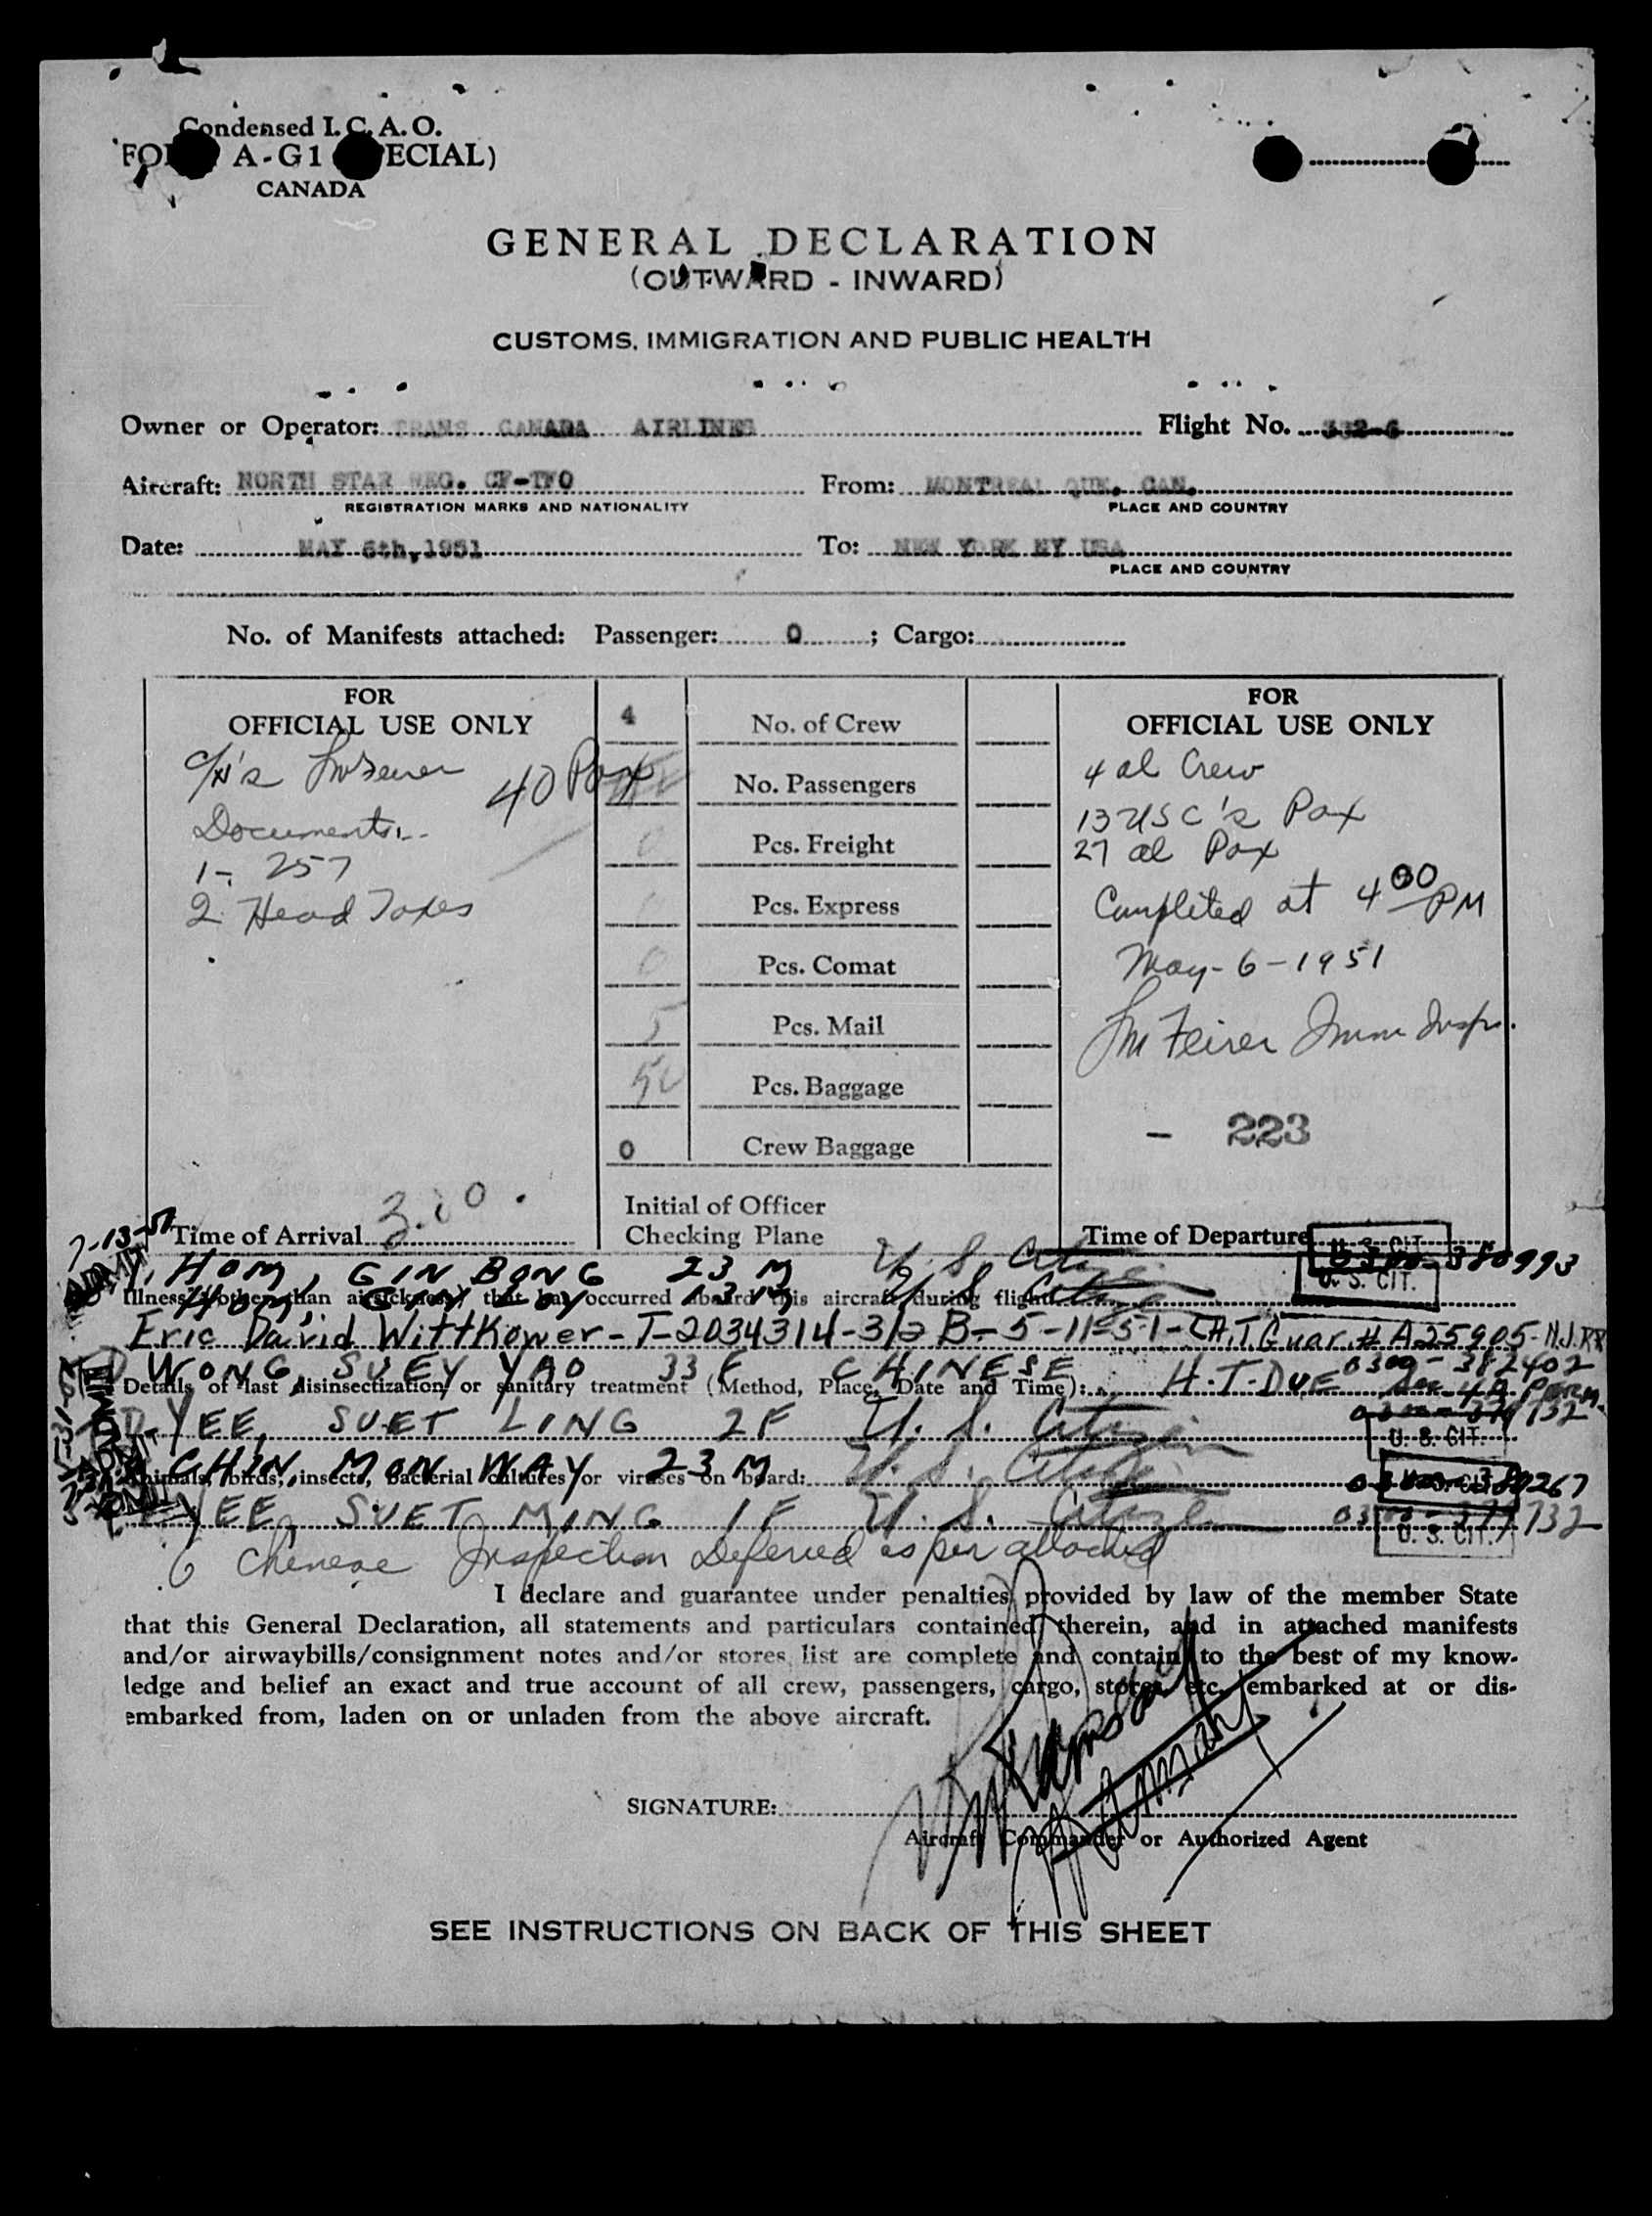 Condensed I. C. A. O.
A-G1 ECIAL)
CANADA
GENERAL DECLARATION
(OUTWARD - INWARD)
CUSTOMS, IMMIGRATION AND PUBLIC HEALTH
Owner or Operator: TRANS CANADA AIRLINES Flight No.
Aircraft: NORTH STAR REG. CF-TFO From: MONTREAL QUE. CAN.
REGISTRATION MARKS AND NATIONALITY PLACE AND COUNTRY
Date: MAY 6th,1951 To: NEW YORK NY USA
PLACE AND COUNTRY
No. of Manifests attached: Passenger: 0 ; Cargo:
FOR
OFFICIAL USE ONLY
Documents
1- 257
2 Head Taxes
Time of Arrival
4 No. of Crew
40 Pax No. Passengers
0 Pcs. Freight
Pcs. Express
0 Pcs. Comat
5 Pcs. Mail
50 Pcs. Baggage
0 Crew Baggage
Initial of Officer
Checking Plane
FOR
OFFICIAL USE ONLY
4 al Crew
13 USC's Pax
27 al Pax
Completed at 4 00 PM
May-6-1951
Feirer Imm Inspr.
- 223
Time of Departure
HOM, GIN BONG 23 M U. S. Citizen 380993
U. S. CIT.
Illness (other than airsickness) that has occurred aboard this aircraft during flight:
HOM, GIN 13 M U. S. Citizen U. S. CIT.
Eric David Wittkower-T-2034314-3/2 B-5-11-51- Guar.# A25905-
WONG, SUEY YAO 33 F CHINESE H.T. DUE 0300-382402
Details of last disinsectization or sanitary treatment (Method, Place, Date and Time):
YEE, SUET LING 2F U. S. Citizen 0300-379732
U. S. CIT.
CHIN, MON WAY 23 M U. S. Citizen
Animals, birds, insects, bacterial cultures or viruses on board:
YEE, SUET MING 1F U. S. Citizen 0300-379732
U. S. CIT.
6 Chinese Inspection Deferred as per attached
I declare and guarantee under penalties provided by law of the member State
that this General Declaration, all statements and particulars contained therein, and in attached manifests
and/or airwaybills/consignment notes and/or stores list are complete and contain to the best of my know-
ledge and belief an exact and true account of all crew, passengers, cargo, stores, etc. embarked at or dis-
embarked from, laden on or unladen from the above aircraft.
SIGNATURE:
Aircraft Commander or Authorized Agent
SEE INSTRUCTIONS ON BACK OF THIS SHEET